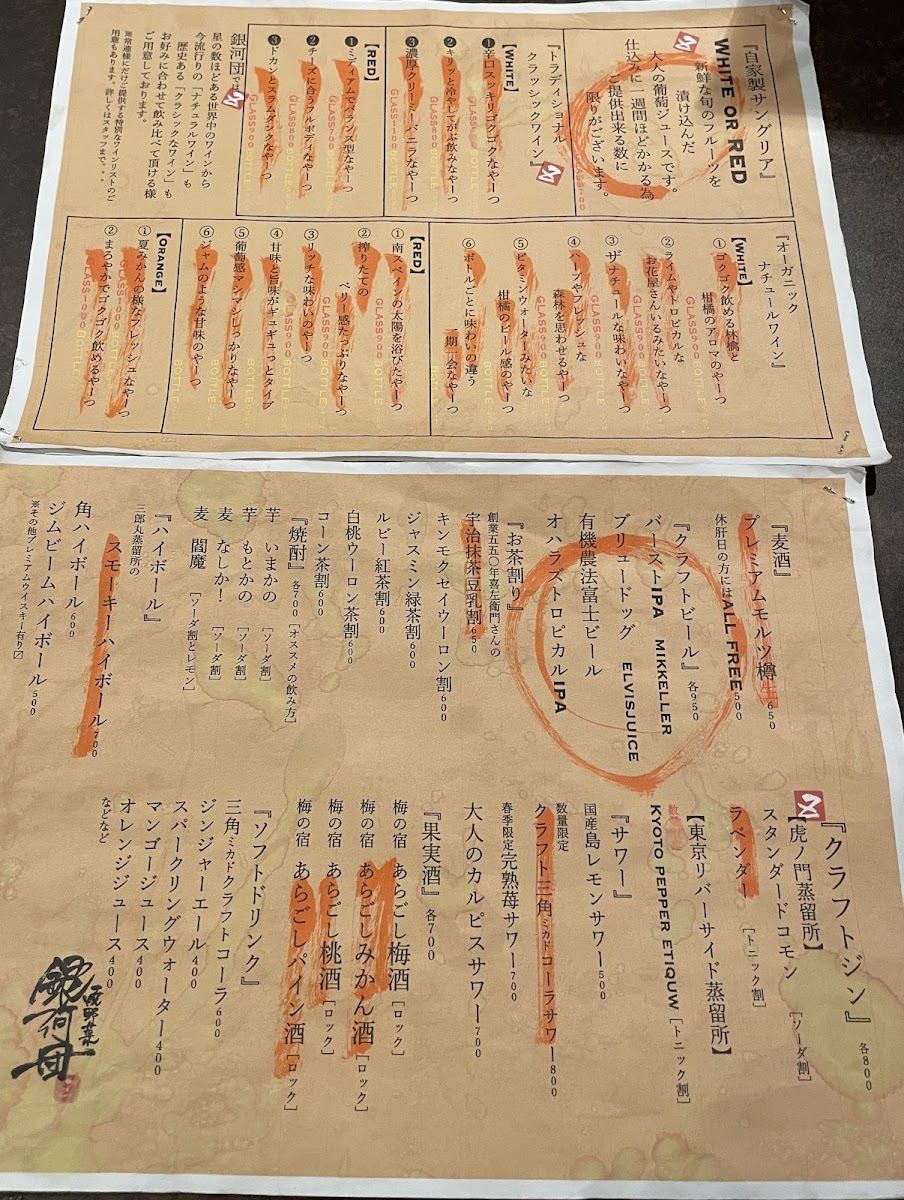 『自家製サングリア』
WHITE OR RED
新鮮な旬のフルーツを
漬け込んだ
大人の葡萄ジュースです。
仕込みに一週間ほどかかる為
ご提供出来る数に
限りがございます。
GLASS700
『トラディショナル
クラッシックワイン』
【WHITE】
❶辛口スッキリゴクゴクなやーつ
❷キリッと冷やしてがぶ飲みなやーつ
GLASS800 BOTTLE
❸濃厚クリーミーバニラなやーつ
GLASS1100 BOTTLE
【RED】
❶ミディアムでバランス型なやーつ
GLASS700 BOTTLE
❷チーズに合うフルボディなやーつ
GLASS800 BOTTLE
❸ドカンとスラムダンクなやーつ
GLASS900 BOTTLE
銀河団では
星の数ほどある世界中のワインから
今流行りの「ナチュラルワイン」も
歴史ある「クラシックなワイン」も
お好みに合わせて飲み比べて頂ける様
ご用意しております。
※常連様にだけご提供する特別なワインリストのご
用意もあります。詳しくはスタッフまで。。。
『オーガニック
ナチュールワイン』
【WHITE】
①ゴクゴク飲める林檎と
柑橘のアロマのやーつ
GLASS900 BOTTLE
②ライムやトロピカルな
お花屋さんいるみたいなやーつ
GLASS900 BOTTLE
③ザナチュールな味わいなやーつ
GLASS900 BOTTLE
④ハーブやフレッシュな
森林を思わせるやーつ
GLASS900 BOTTLE
⑤ビタミンウォーターみたいな
柑橘のピール感のやーつ
GLASS900 BOTTLE
⑥ボトルごとに味わいの違う
一期一会なやーつ
【RED】
①南スペインの太陽を浴びたやーつ
GLASS900 BOTTLE
②搾りたての
ベリー感たっぷりなやーつ
GLASS900 BOTTLE
③リッチな味わいのやーつ
GLASS900 BOTTLE
④甘味と旨味がギュギュっとタイプ
BOTTLE
⑤葡萄感マシマシしっかりなやーつ
BOTTLE
⑥ジャムのような甘味のやーつ
BOTTLE
【ORANGE】
①夏みかんの様なフレッシュなやーつ
GLASS1000 BOTTLE
②まろやかでゴクゴク飲めるやーつ
GLASS1000 BOTTLE
『麦酒』
プレミアムモルツ樽 650
休肝日の方にはALL FREE500
『クラフトビール』各950
バーストIPA MIKKELLER
ブリュードッグ ELVISJUICE
有機農法富士ビール
オハラズトロピカルIPA
『お茶割り』
創業五五〇年喜左衛門さんの
宇治抹茶豆乳割650
キンモクセイウーロン割600
ジャスミン緑茶割600
ルビー紅茶割600
白桃ウーロン茶割600
コーン茶割600
『焼酎』各700［オススメの飲み方］
芋 いまかの ［ソーダ割］
芋 もとかの ［ソーダ割］
麦 なしか！ ［ソーダ割］
麦 閻魔 ［ソーダ割とレモン］
『ハイボール』
三郎丸蒸留所の
スモーキーハイボール700
角ハイボール600
ジムビームハイボール500
※その他プレミアムウイスキー有り〼
『クラフトジン』各800
【虎ノ門蒸留所】
スタンダードコモン ［ソーダ割］
ラベンダー ［トニック割］
【東京リバーサイド蒸留所】
KYOTO PEPPER ETIQUW［トニック割］
『サワー』
国産島レモンサワー500
数量限定
クラフト三角ミカドコーラサワー800
春季限定完熟苺サワー700
大人のカルピスサワー700
『果実酒』各700
梅の宿 あらごし梅酒［ロック］
梅の宿 あらごしみかん酒［ロック］
梅の宿 あらごし桃酒［ロック］
梅の宿 あらごしパイン酒［ロック］
『ソフトドリンク』
三角ミカドクラフトコーラ600
ジンジャーエール400
スパークリングウォーター400
マンゴージュース400
オレンジジュース400
などなど